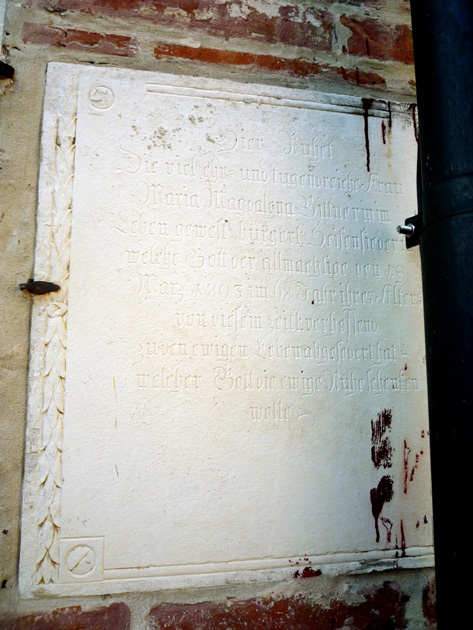 Hier Ruhet
Die viel ehr- und tugendreiche Frau
Maria Magdalena
Leben gewest bürgerl. Seifensiederi
welche Gott der allmächtige den
März 1793 im Jahr ihres Alters
von diesem zeitl. verhessend
zu den ewigen Leben abgefodert hat -
welcher Gott die ewige Ruhe schenken
wolle -